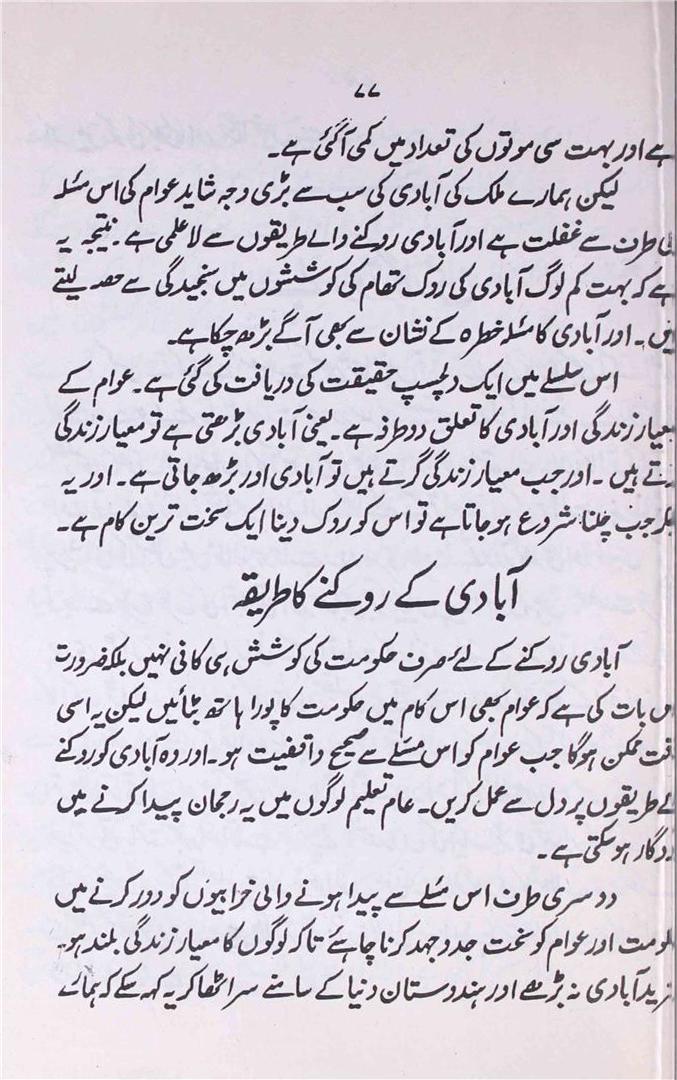 ۷۷
ہے اور بہت سی موتوں کی تعداد میں کمی آگئی ہے۔
لیکن ہمارے ملک کی آبادی کی سب سے بڑی وجہ شاید عوام کی اس مسئلہ
طرف سے غفلت ہے اور آبادی روکنے والے طریقوں سے لاعلمی ہے۔ نتیجہ یہ
ہے کہ بہت کم لوگ آبادی کی روک تھام کی کوششوں میں سنجیدگی سے حصہ لیتے
ہیں۔ اور آبادی کا مسئلہ خطرہ کے نشان سے بھی آگے بڑھ چکا ہے۔
اس سلسلے میں ایک دلچسپ حقیقت کی دریافت کی گئی ہے۔ عوام کے
معیار زندگی اور آبادی کا تعلق دو طرفہ ہے۔ یعنی آبادی بڑھتی ہے تو معیار زندگی
گرتے ہیں۔ اور جب معیار زندگی گرتے ہیں تو آبادی اور بڑھ جاتی ہے۔ اور یہ
جب چلنا شروع ہو جاتا ہے تو اس کو روک دینا ایک سخت ترین کام ہے۔
آبادی کے روکنے کا طریقہ
آبادی روکنے کے لئے صرف حکومت کی کوشش ہی کافی نہیں بلکہ ضرورت
اس بات کی ہے کہ عوام بھی اس کام میں حکومت کا پورا ہاتھ بٹائیں لیکن یہ اسی
وقت ممکن ہوگا جب عوام کو اس مسئلے سے صحیح واقفیت ہو۔ اور وہ آبادی کو روکنے
کے طریقوں پر دل سے عمل کریں۔ عام تعلیم لوگوں میں یہ رجحان پیدا کرنے میں
مددگار ہو سکتی ہے۔
دوسری طرف اس مسئلے سے پیدا ہونے والی خرابیوں کو دور کرنے میں
حکومت اور عوام کو سخت جدوجہد کرنا چاہئے تاکہ لوگوں کا معیار زندگی بلند ہو۔
مزید آبادی نہ بڑھے اور ہندوستان دنیا کے سامنے سر اٹھا کر یہ کہہ سکے کہ ہمارے